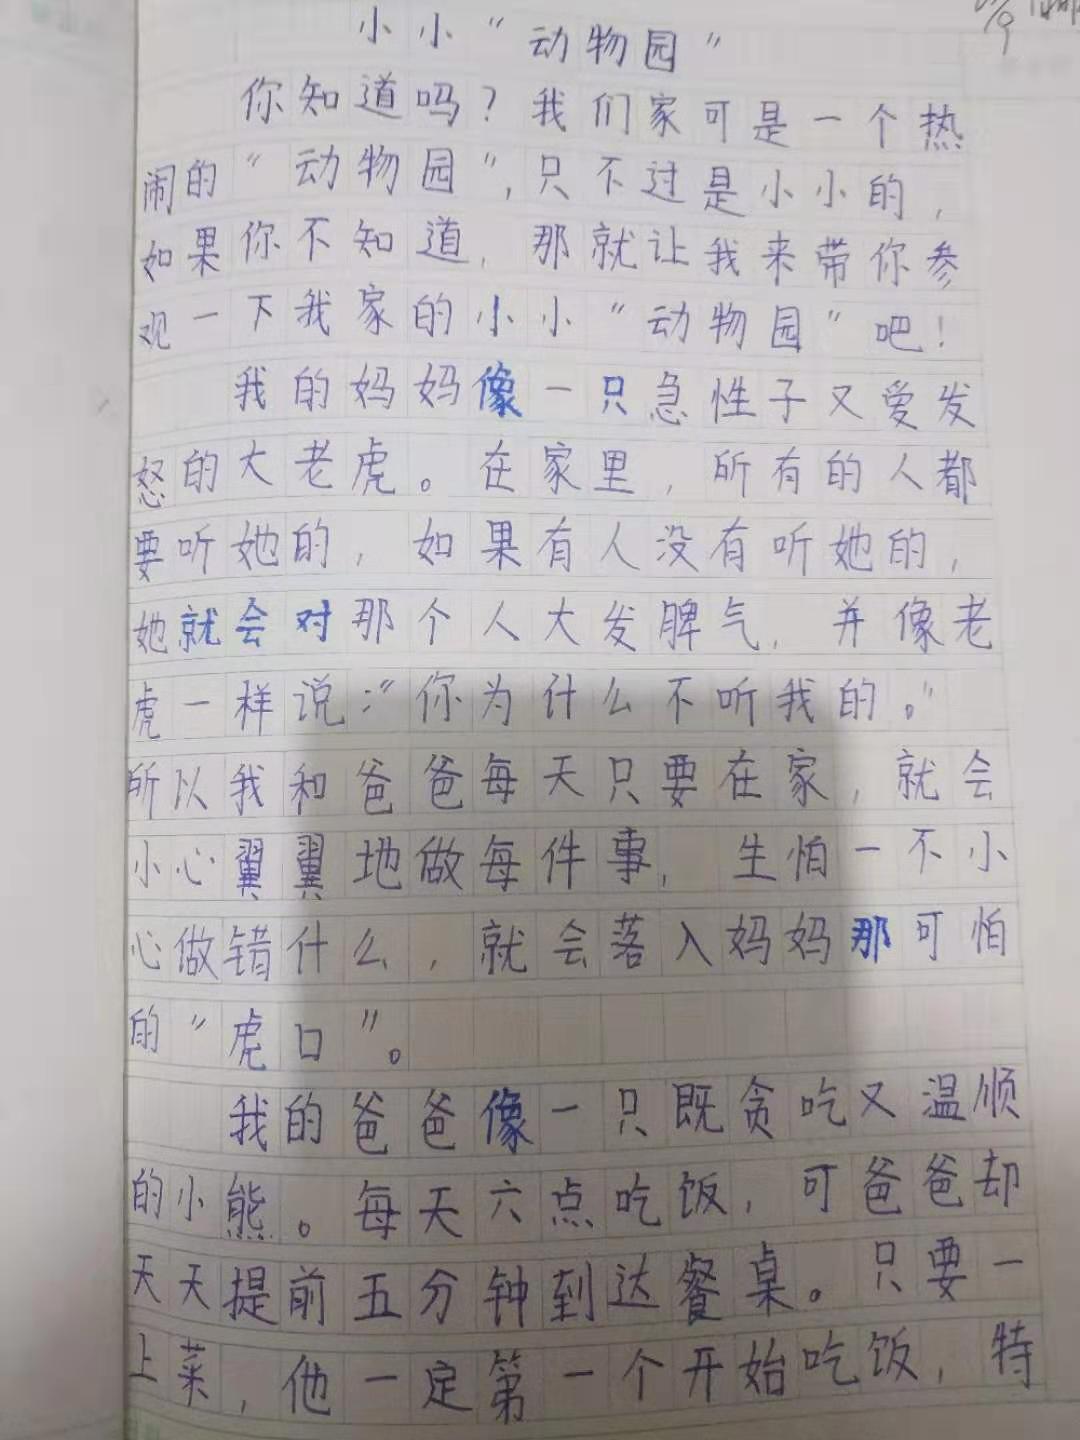 小小“动物园”
你知道吗？我们家可是一个热
闹的“动物园”,只不过是小小的，
如果你不知道，那就让我来带你参
观一下我家的小小“动物园”吧！
我的妈妈像一只急性子又爱发
怒的大老虎。在家里，所有的人都
要听她的，如果有人没有听她的，
她就会对那个人大发脾气，并像老
虎一样说：“你为什么不听我的。”
所以我和爸爸每天只要在家，就会
小心翼翼地做每件事，生怕一不小
心做错什么，就会落入妈妈那可怕
的“虎口”。
我的爸爸像一只既贪吃又温顺
的小熊。每天六点吃饭，可爸爸却
天天提前五分钟到达餐桌。只要一
上菜，他一定第一个开始吃饭，特